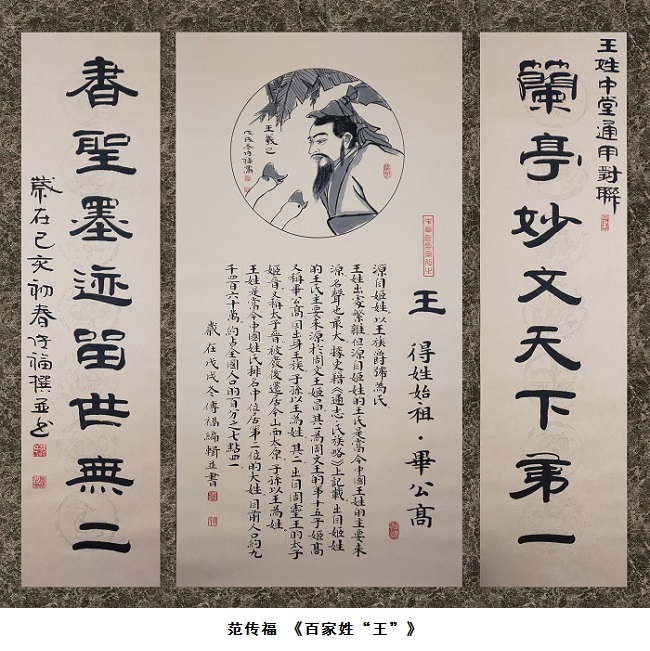 王姓中堂通用對聯
蘭亭妙文天下第一
王羲之
戊戌冬传福寫
王 得姓始祖·畢公高
源自姬姓以王族爵號為氏
王姓出處繁雜但源自姬姓的王氏是當今中國王姓的主要來
源名聲也最大據史籍《通志·氏族略》上記載出自姬姓
的王氏主要來源於周文王姬昌其一為周文王的第十五子姬高
又稱畢公高因出身王族子孫以王為姓其二出自周靈王的太子
姬晉又稱太子晉被廢後遷居今山西太原子孫以王為姓
王姓是當今中國姓氏排名中位居第二位的大姓目前人口約九
千四百六十萬約占全國人口的百分之七點四一
歲在戊戌冬傳福編輯並書
書聖墨迹留世無二
歲在己亥初春传福撰並书
范传福 《百家姓“王”》